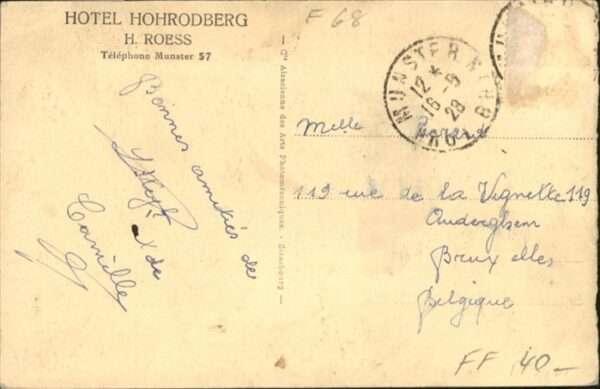 HOTEL HOHRODBERG
H. ROESS
Téléphone Munster 57
F 68
MUNSTER
12 *
16 - 9
28
HAUT-RHIN
Bonnes amitiés de
x de
Camille
Alsacienne des Arts Photomécaniques - Strasbourg -
Melle
119 rue de la Vignette 119
Auderghem
Bruxelles
Belgique
FF 40-